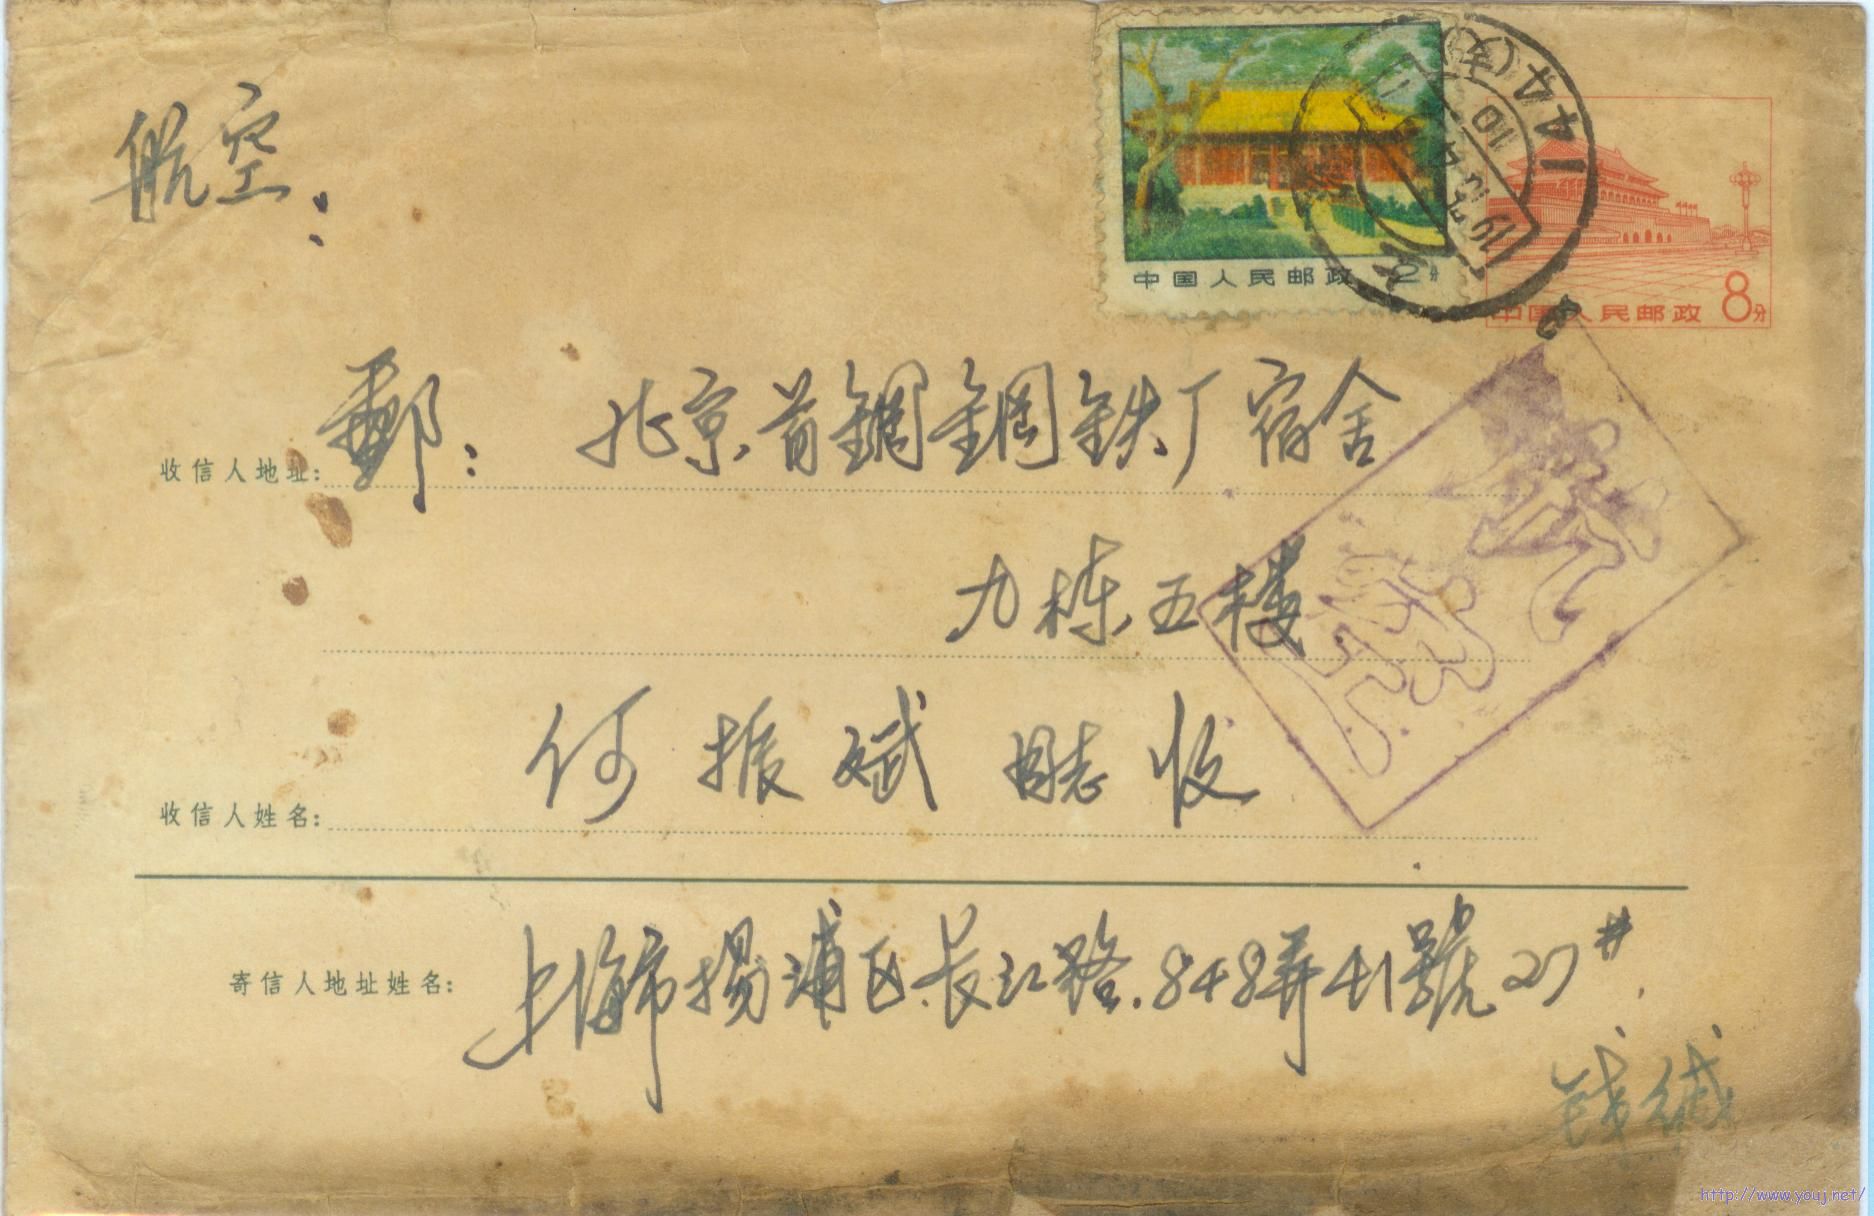 航空:
中国人民邮政 2分
中国人民邮政 8分
144
10
收信人地址: 郵: 北京首鋼鋼铁厂宿舍
九栋五楼
收信人姓名: 何振斌 同志收
寄信人地址姓名: 上海市楊浦区.長江路.848弄41號27#.
钱缄
http://www.youj.net/